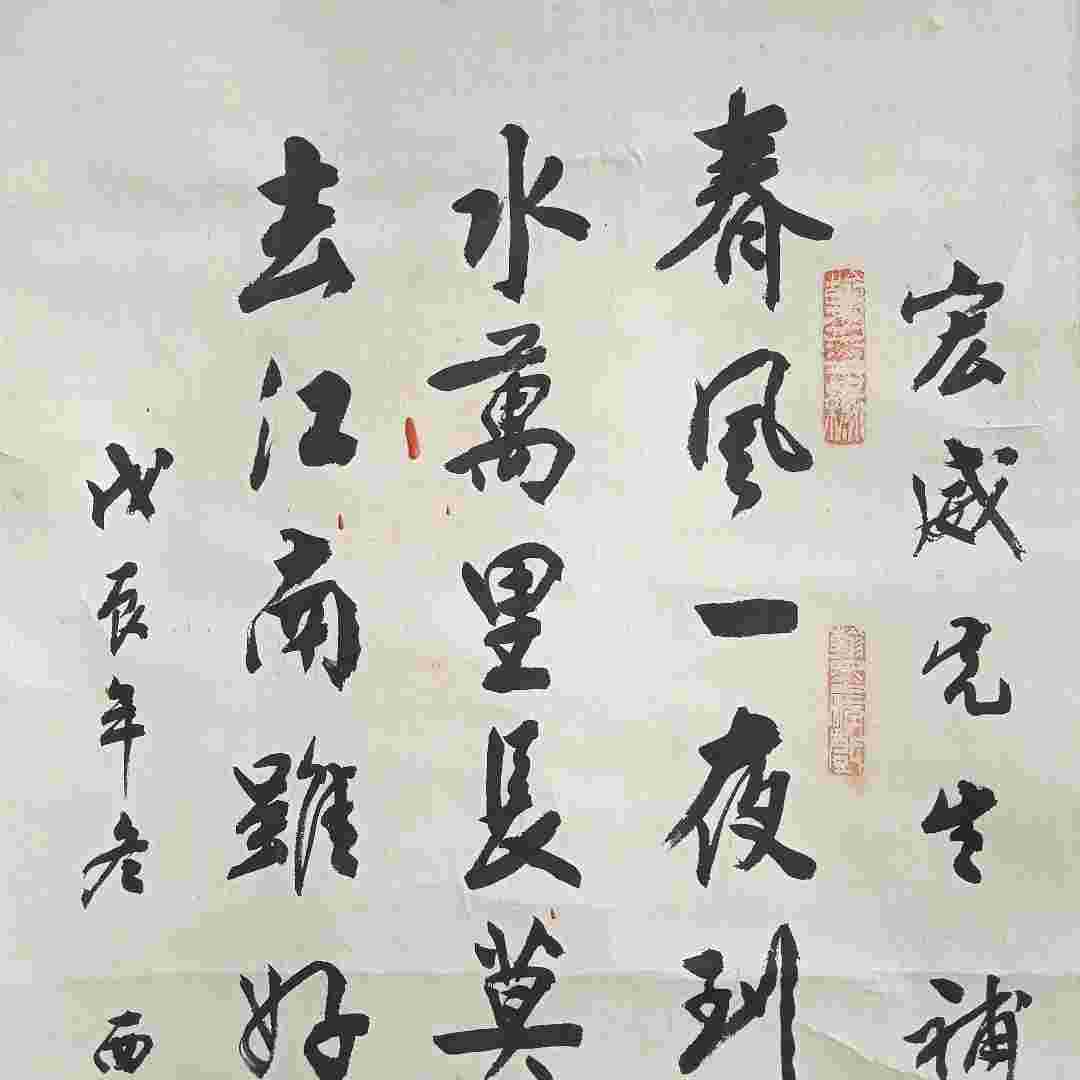 宏威先生補
春風一夜到
水萬里長莫
去江南雖好
戊辰年冬西